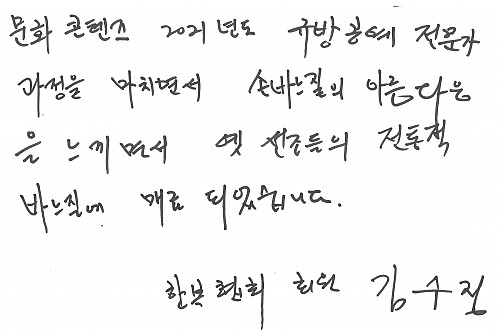 문화 콘텐츠 2021년도 규방공예 전문가
과정을 마치면서 손바느질의 아름다운
을 느끼면서 옛 선조들의 전통적
바느질에 매료 되었습니다.
한복협회 회원 김수진